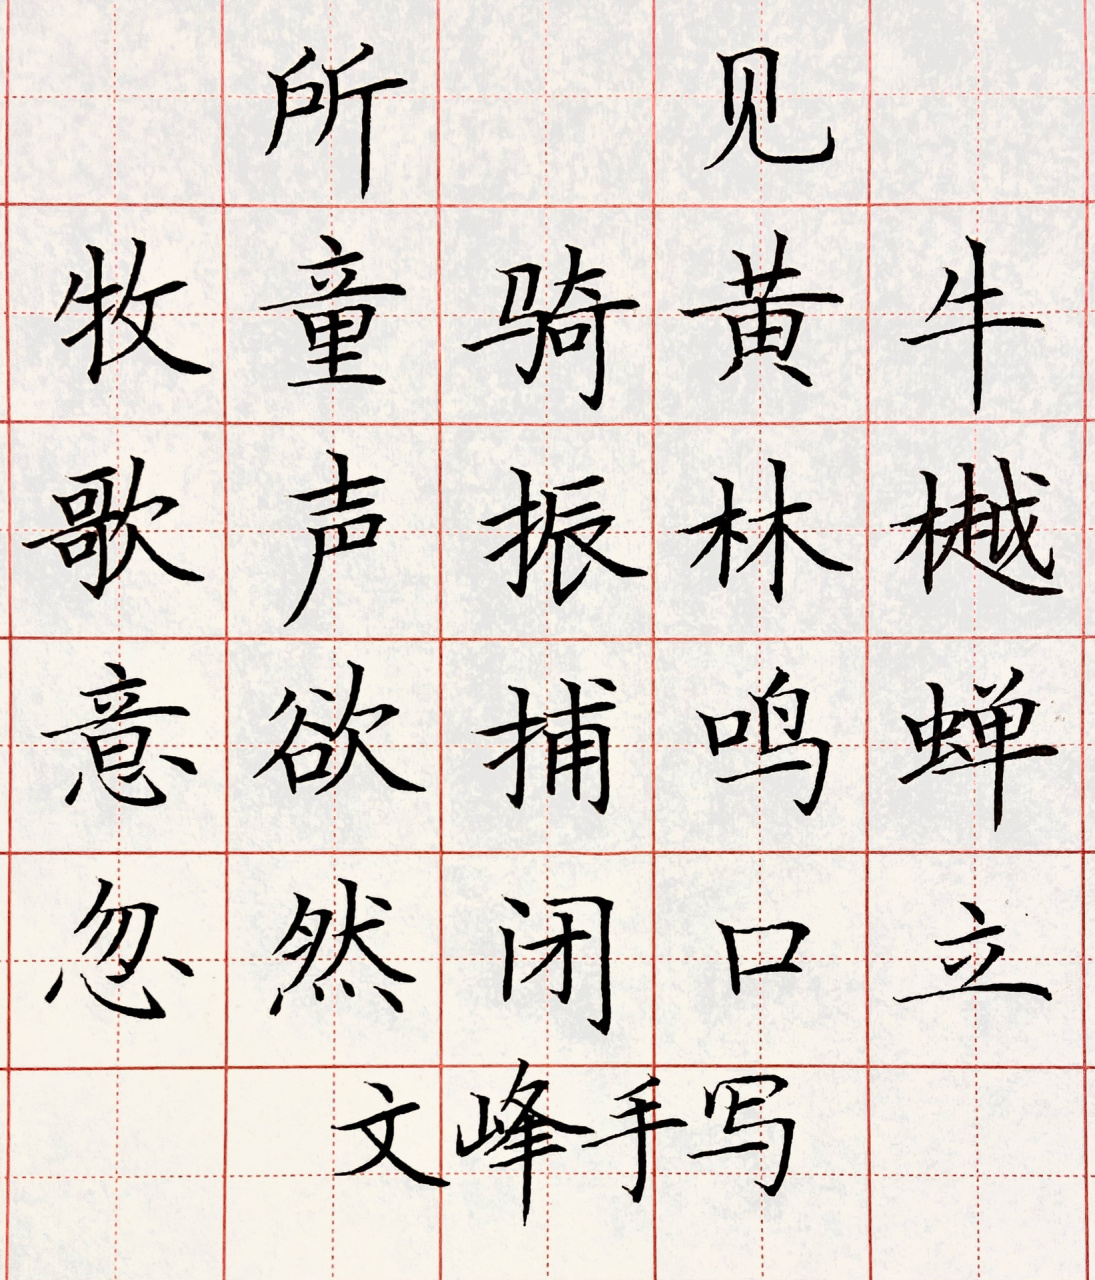 所见
牧童骑黄牛
歌声振林樾
意欲捕鸣蝉
忽然闭口立
文峰手写